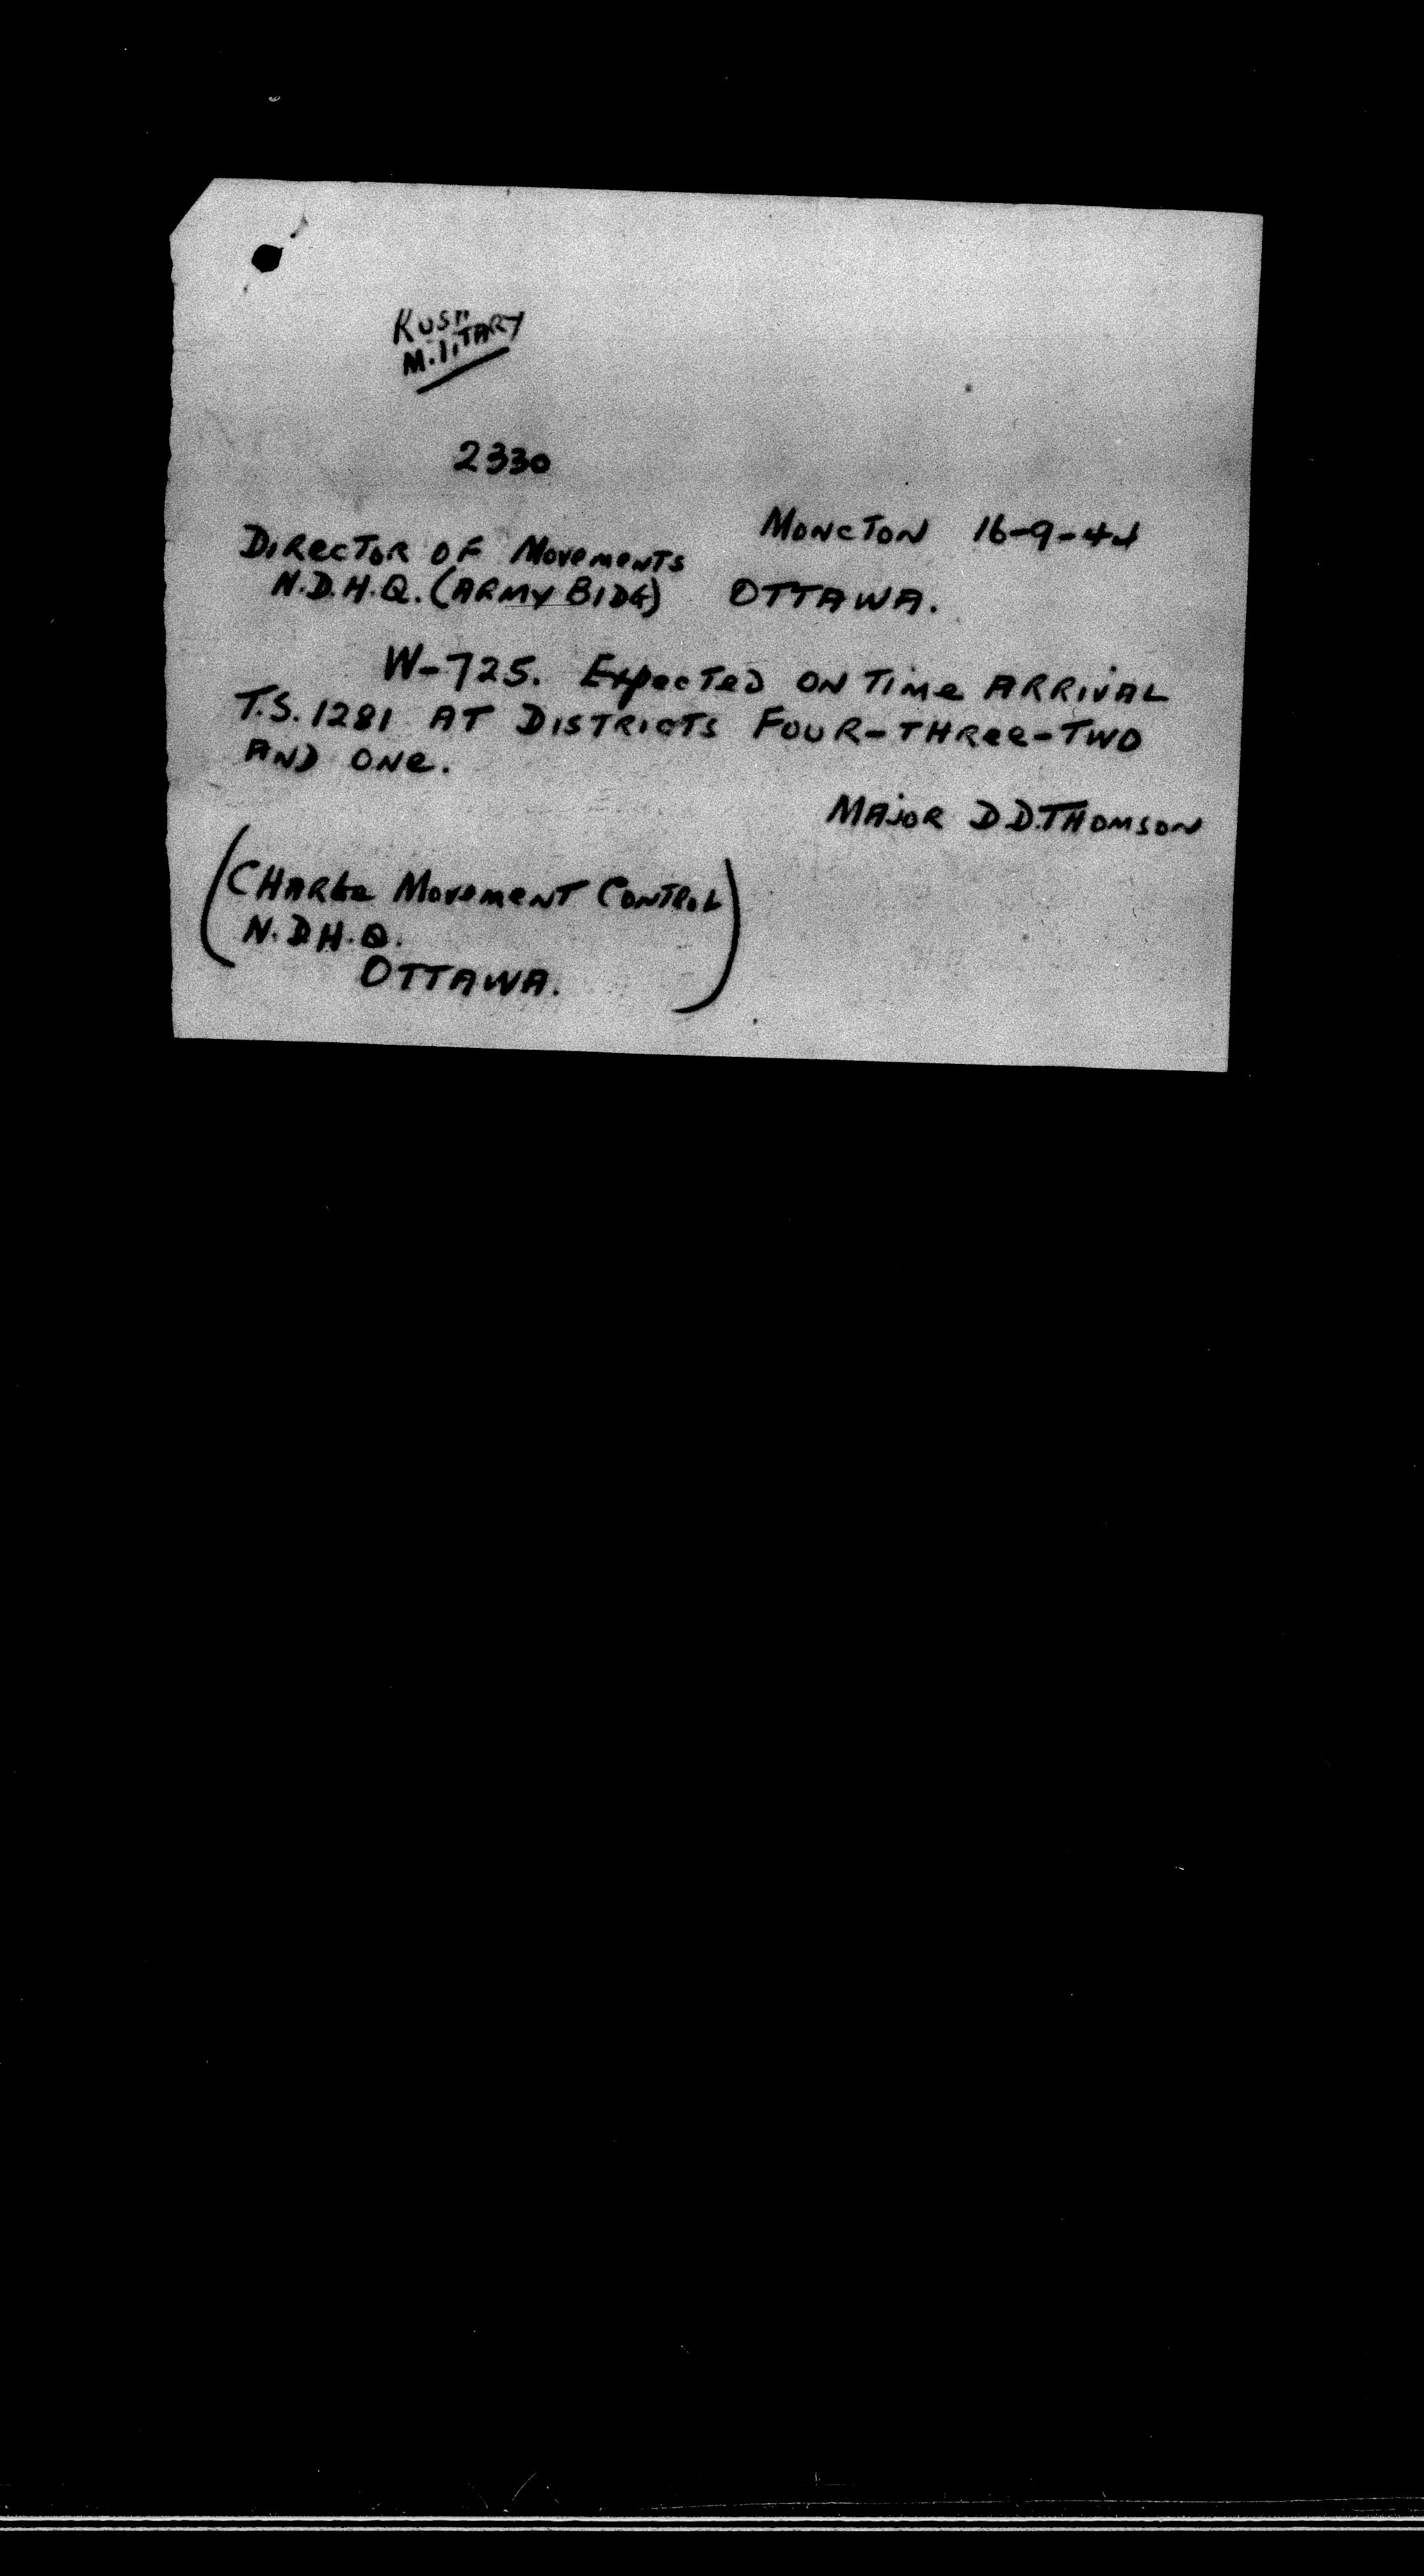 Rush
Military
2330
Moncton 16-9-44
Director of Movements
N.D.H.Q. (Army Bldg) Ottawa.
W-725. Expected on time arrival
T.S. 1281 at Districts Four-Three-Two
and one.
Major D.D. Thomson
(Charge Movement Control
N.D.H.Q.
Ottawa.)